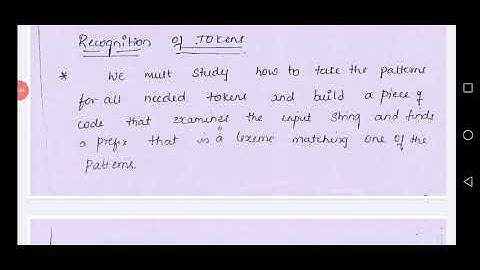 Recognition of Tokens
* We must study how to take the patterns
for all needed tokens and build a piece of
code that examines the input string and finds
a prefix that is a lexeme matching one of the
patterns.